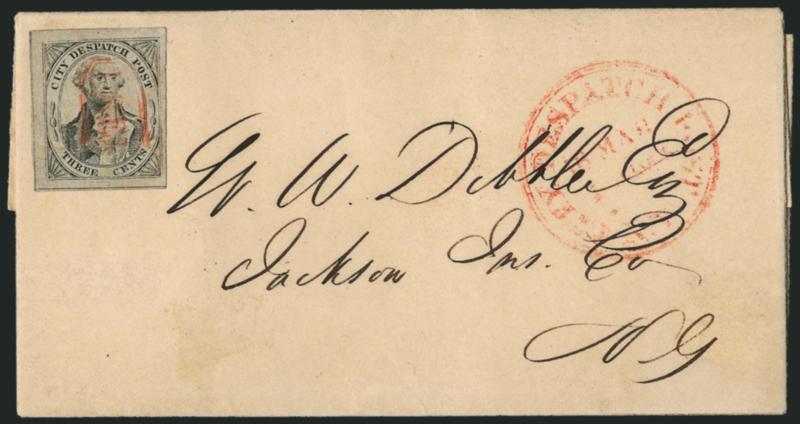 CITY DESPATCH POST
THREE CENTS
CITY DESPATCH POST
MAR
W. W. Dibblee Esq
Jackson Ins. Co
N Y